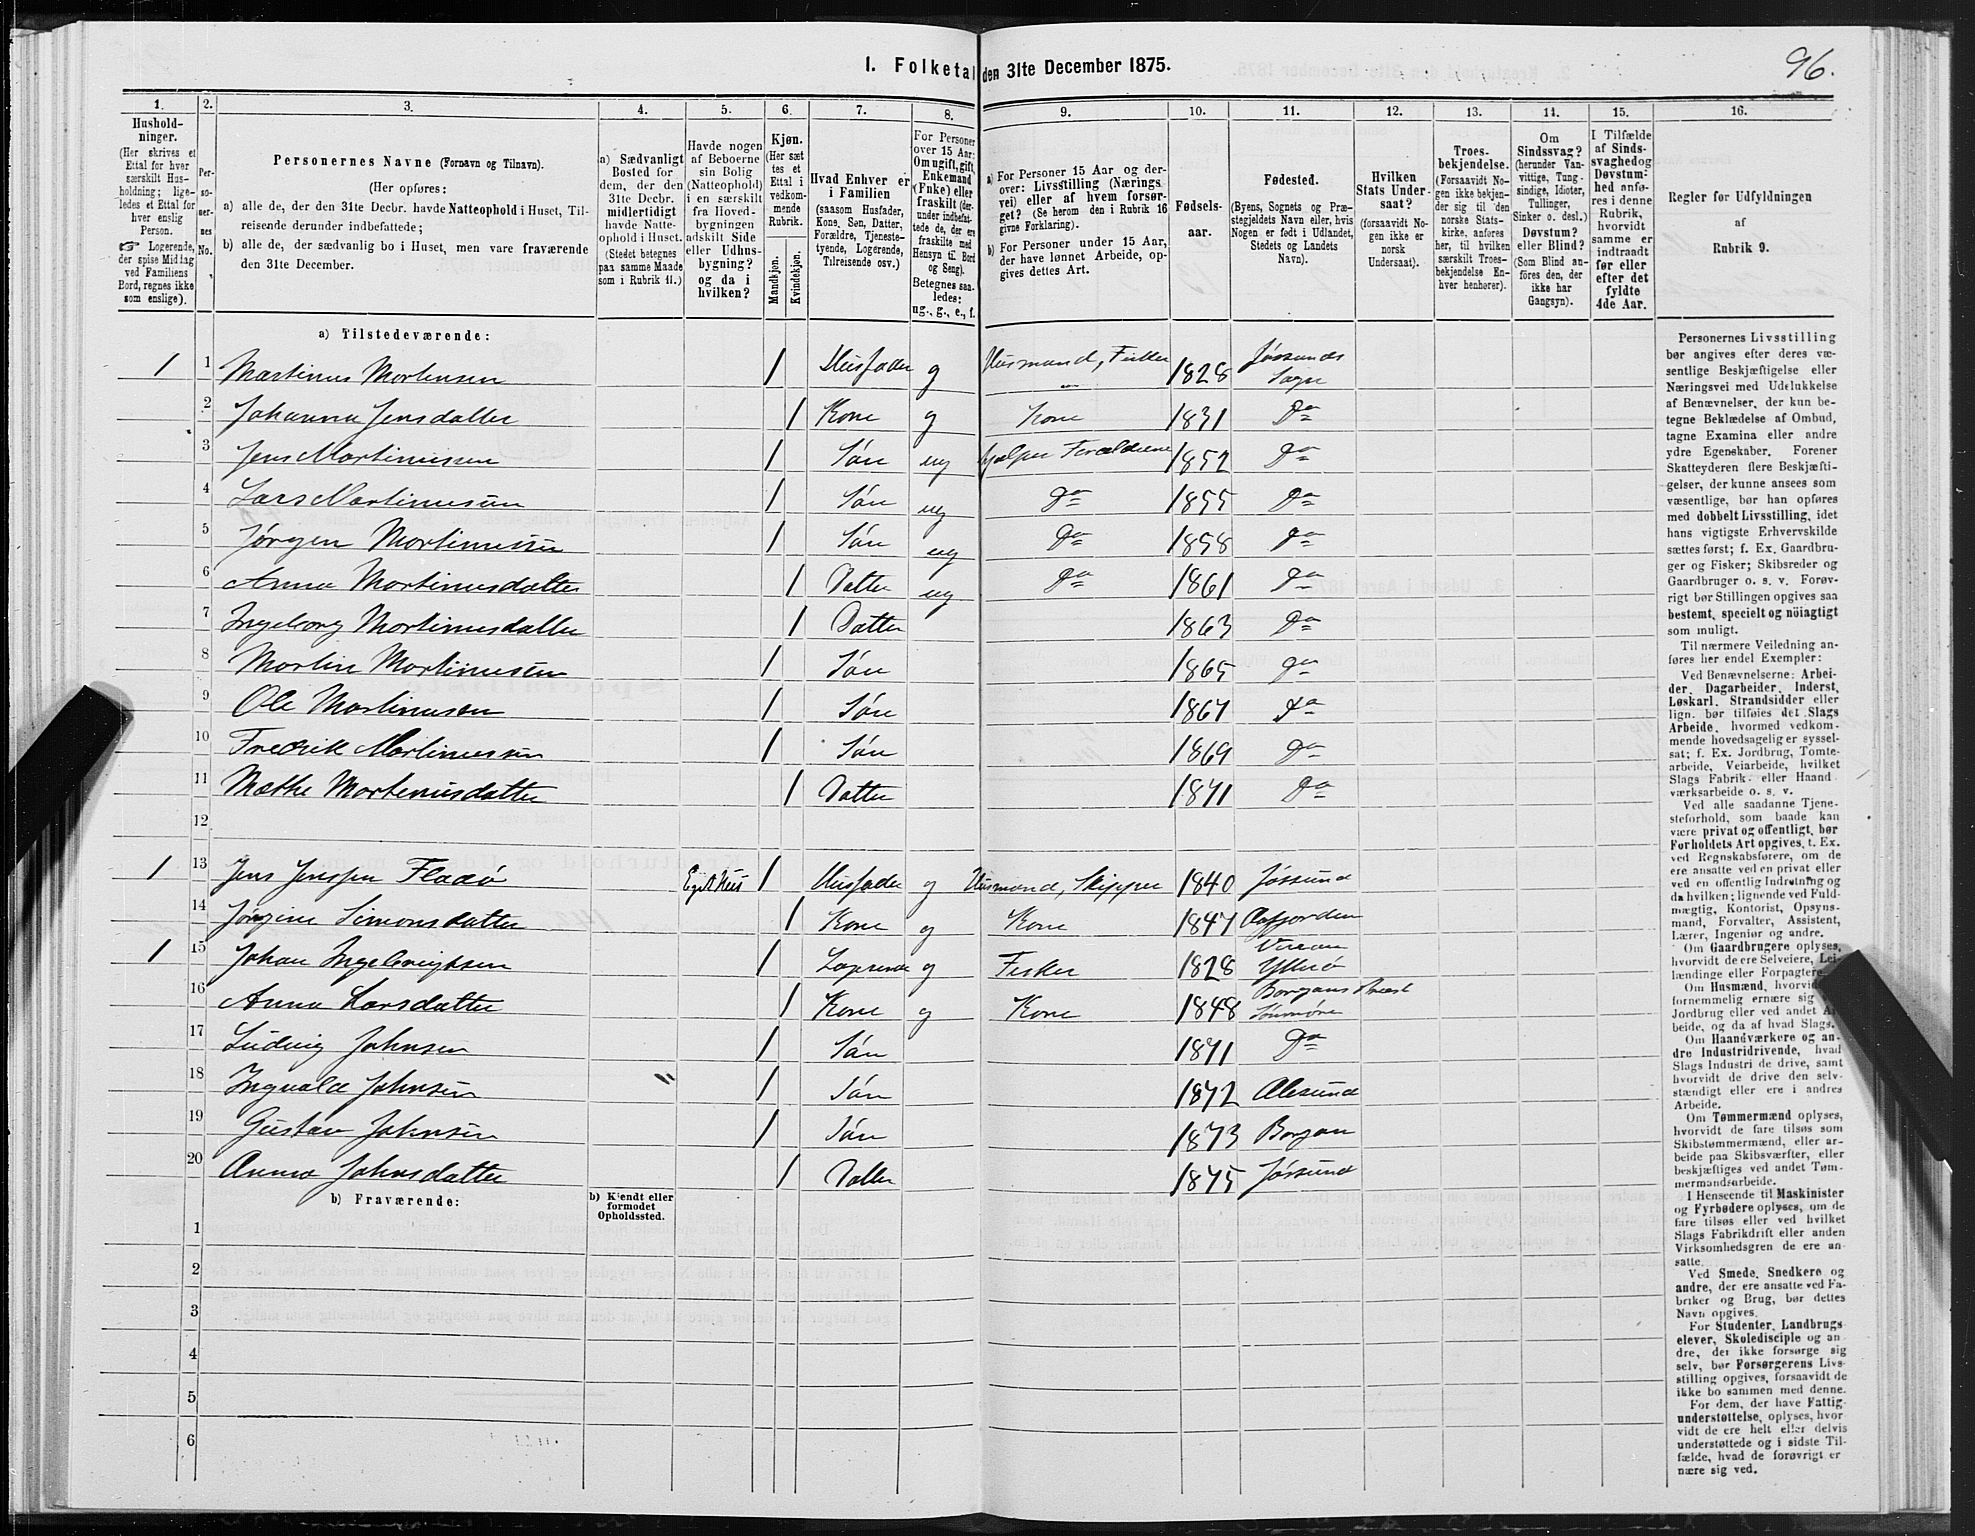 96.
I. Folketal den 31te December 1875.
1. 2. 3. 4. 5. 6. 7. 8. 9. 10. 11. 12. 13. 14. 15. 16.
Hushold-
ninger.
(Her skrives et
Ettal for hver
særskilt Hus-
holdning; lige-
ledes et Ettal for
hver enslig
Person.
☞ Logerende,
der spise Middag
ved Familiens
Bord, regnes ikke
som enslige).
Per-
so-
ner-
nes
No.
Personernes Navne (Fornavn og Tilnavn).
(Her opføres:
a) alle de, der den 31te Decbr. havde Natteophold i Huset, Til-
reisende derunder indbefattede;
b) alle de, der sædvanlig bo i Huset, men vare fraværende
den 31te December.
a) Sædvanligt
Bosted for
dem, der den
31te Decbr.
midlertidigt
havde Natte-
ophold i Huset.
(Stedet betegnes
paa samme Maade
som i Rubrik 11.)
Havde nogen
af Beboerne
sin Bolig
(Natteophold)
i en særskilt
fra Hoved-
bygningen
adskilt Side
eller Udhus-
bygning?
og da i
hvilken?
Kjøn.
(Her sæt
tes et
Ettal i
vedkom-
mende
Rubrik.
Mandkjøn.
Kvindekjøn.
Hvad Enhver er
i Familien
(saasom Husfader,
Kone, Søn, Datter,
Forældre, Tjeneste-
tyende, Logerende,
Tilreisende osv.)
For Personer
over 15 Aar:
Om ugift, gift,
Enkemand
(Enke) eller
fraskilt (der-
under indbefat-
tede de, der ere
fraskilte med
Hensyn til Bord
og Seng).
Betegnes saa-
ledes:
ug., g., e., f.
a) For Personer 15 Aar og der-
over: Livsstilling (Nærings
vei) eller af hvem forsør-
get? (Se herom den i Rubrik 16
givne Forklaring).
b) For Personer under 15 Aar,
der have lønnet Arbeide, op-
gives dettes Art.
Fødsels-
aar.
Fødested.
(Byens, Sognets og Præ-
stegjeldets Navn eller, hvis
Nogen er født i Udlandet,
Stedets og Landets
Navn).
Hvilken
Stats Under-
saat?
(forsaavidt No-
gen ikke er
norsk
Undersaat).
Troes-
bekjendelse.
(Forsaavidt No-
gen ikke bekjen-
der sig til den
norske Stats-
kirke, anføres
her, til hvilken
særskilt Troes-
bekjendelse En-
hver henhører).
Om
Sindssvag?
(herunder Van-
vittige, Tung-
sindige, Idioter,
Tullinger,
Sinker o. desl.)
Døvstum?
eller Blind?
(Som Blind an-
føres den, der
ikke har
Gangsyn).
I Tilfælde
af Sinds-
svaghed og
Døvstum-
hed anfø-
res i denne
Rubrik,
hvorvidt
samme er
indtraadt
før eller
efter det
fyldte
4de Aar.
Regler for Udfyldningen
af
Rubrik 9.
a) Tilstedeværende:
1 1 Martinus Mortensen 1 Husfader g Husmand, Fisker 1828 Jøssunds Sogn
2 Johanna Jensdatter 1 Kone g Kone 1831 Do
3 Jens Martinussen 1 Søn ug hjælper Forældrene 1852 Do
4 Lars Martinussen 1 Søn ug Do 1855 Do
5 Jørgen Martinussen 1 Søn ug Do 1858 Do
6 Anna Martinusdatter 1 Datter ug Do 1861 Do
7 Ingeborg Martinusdatter 1 Datter 1863 Do
8 Martin Martinussen 1 Søn 1865 Do
9 Ole Martinussen 1 Søn 1867 Do
10 Fredrik Martinussen 1 Søn 1869 Do
11 Mæthe Martinusdatter 1 Datter 1871 Do
12
1 13 Jens Jenssen Fladø Eget Hus 1 Husfader g Husmand, Skipper 1840 Jøssund
14 Jørgine Simonsdatter 1 Kone g Kone 1847 Aafjorden
1 15 Johan Ingebrigtsen 1 Logerende g Fisker 1828 Ytterø
16 Anna Larsdatter 1 Kone g Kone 1848 Borgunds Præst Sønmøre
17 Ludvig Johnsen 1 Søn 1871 Do
18 Ingvald Johnsen " 1 Søn 1872 Alesund
19 Gustav Johnsen 1 Søn 1873 Borgun
20 Anna Johnsdatter 1 Datter 1875 Jøssund
b) Fraværende:
b) Kjendt eller
formodet
Opholdssted.
1
2
3
4
5
6
Personernes Livsstilling
bør angives efter deres væ-
sentlige Beskjæftigelse eller
Næringsvei med Udelukkelse
af Benævnelser, der kun be-
tegne Beklædelse af Ombud,
tagne Examina eller andre
ydre Egenskaber. Forener
Skatteyderen flere Beskjæfti-
gelser, der kunne ansees som
væsentlige, bør han opføres
med dobbelt Livsstilling, idet
hans vigtigste Erhvervskilde
sættes først; f. Ex. Gaardbru-
ger og Fisker; Skibsreder og
Gaardbruger o. s. v. Forøv-
rigt bør Stillingen opgives saa
bestemt, specielt og nöiagtigt
som muligt.
Til nærmere Veiledning an-
føres her endel Exempler:
Ved Benævnelserne: Arbei-
der, Dagarbeider, Inderst,
Løskarl, Strandsidder eller
lign. bør tilføies det Slags
Arbeide, hvormed vedkom-
mende hovedsagelig er syssel-
sat; f. Ex. Jordbrug, Tomte-
arbeide, Veiarbeide, hvilket
Slags Fabrik- eller Haand
værksarbeide o. s. v.
Ved alle saadanne Tjene-
steforhold, som baade kan
være privat og offentligt, bør
Forholdets Art opgives, t. Ex.
ved Regnskabsførere, om de
ere ansatte ved en privat eller
ved en offentlig Indretning og
da hvilken; lignende ved Fuld-
mægtig, Kontorist, Opsyns-
mand, Forvalter, Assistent,
Lærer, Ingeniør og andre.
Om Gaardbrugere oplyses,
hvorvidt de ere Selveiere, Lei-
lændinge eller Forpagtere.
Om Husmænd, hvorvidt
fornemmelig ernære sig
Jordbrug eller ved andet Ar-
beide, og da af hvad Slags.
Om Haandværkere og an-
dre Industridrivende, hvad
Slags Industri de drive, samt
hvorvidt de drive den selv-
stændigt eller ere i andres
Arbeide.
Om Tømmermænd oplyses,
hvorvidt de fare tilsøs som
Skibstømmermænd, eller ar-
beide paa Skibsværfter, eller
beskjæftiges ved andet Tøm-
mermandsarbeide.
I Henseende til Maskinister
og Fyrbødere oplyses, om de
fare tilsøs eller ved hvilket
Slags Fabrikdrift eller anden
Virksomhedsgren de ere an-
satte.
Ved Smede, Snedkere og
andre, der ere ansatte ved Fa-
briker og Brug, bør dettes
Navn opgives.
For Studenter, Landbrugs
elever, Skoledisciple og an-
dre, der ikke forsørge sig
selv, bør Forsørgerens Livs-
stilling opgives, forsaavidt de
ikke bo sammen med denne.
For dem, der have Fattig-
understøttelse, oplyses, hvor
vidt de ere helt eller delvis
understøttede og i sidste Til-
fælde, hvad de forøvrigt er
nære sig ved.